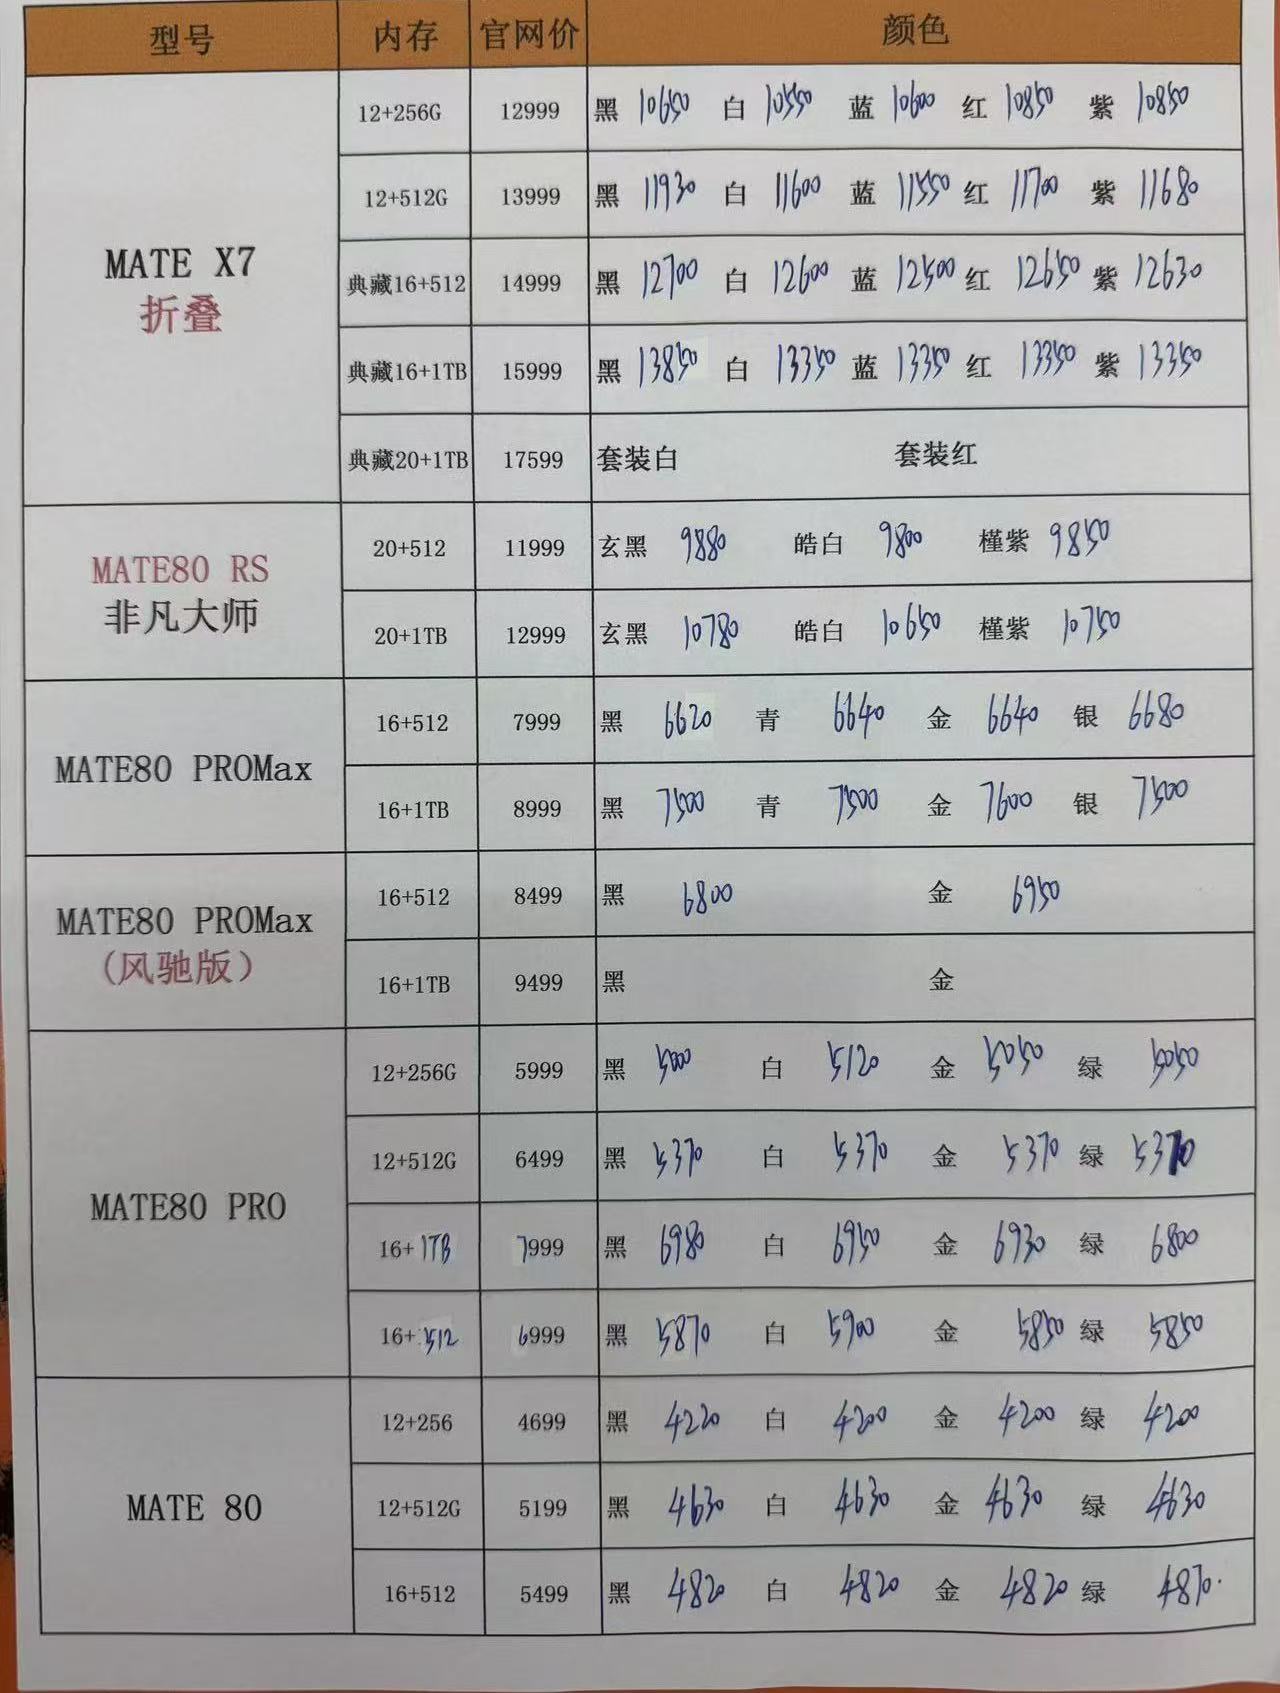 型号 内存 官网价 颜色
MATE X7
折叠
12+256G 12999 黑 10650 白 10550 蓝 10600 红 10850 紫 10850
12+512G 13999 黑 11930 白 11600 蓝 11550 红 11700 紫 11680
典藏16+512 14999 黑 12700 白 12600 蓝 12500 红 12650 紫 12630
典藏16+1TB 15999 黑 13850 白 13350 蓝 13350 红 13350 紫 13350
典藏20+1TB 17599 套装白 套装红
MATE80 RS
非凡大师
20+512 11999 玄黑 9880 皓白 9800 槿紫 9850
20+1TB 12999 玄黑 10780 皓白 10650 槿紫 10750
MATE80 PROMax
16+512 7999 黑 6620 青 6640 金 6640 银 6680
16+1TB 8999 黑 7500 青 7500 金 7600 银 7500
MATE80 PROMax
(风驰版)
16+512 8499 黑 6800 金 6950
16+1TB 9499 黑 金
MATE80 PRO
12+256G 5999 黑 5000 白 5120 金 5050 绿 5050
12+512G 6499 黑 5370 白 5370 金 5370 绿 5370
16+1TB 7999 黑 6980 白 6950 金 6930 绿 6800
16+512 6999 黑 5870 白 5900 金 5850 绿 5850
MATE 80
12+256 4699 黑 4220 白 4200 金 4200 绿 4200
12+512G 5199 黑 4630 白 4630 金 4630 绿 4630
16+512 5499 黑 4820 白 4820 金 4820 绿 4870.